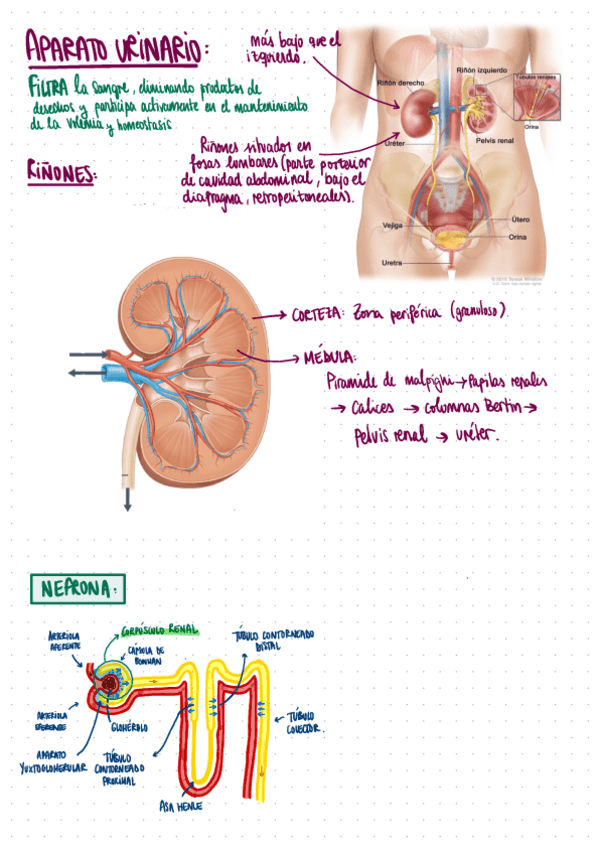 APARATO URINARIO:
FILTRA la sangre, eliminando productos de
desechos y participa activamente en el mantenimiento
de la volemia y homeostasis
RIÑONES:
más bajo que el
izquierdo.
Riñones situados en
fosas lumbares (parte posterior
de cavidad abdominal, bajo el
diafragma, retroperitoneales).
Riñón derecho
Riñón izquierdo
Túbulos renales
Orina
Uréter
Pelvis renal
Vejiga
Útero
Orina
Uretra
CORTEZA: Zona periférica (granuloso)
MÉDULA:
Piramide de malpigni → Papilas renales
→ Calices → columnas Bertin →
Pelvis renal → uréter.
NEFRONA:
ARTERIOLA
AFERENTE
CORPÚSCULO RENAL
CÁPSULA DE
BOWMAN
TÚBULO CONTORNEADO
DISTAL
ARTERIOLA
EFERENTE
GLOMÉRULO
TÚBULO
COLECTOR.
APARATO
YUXTOGLOMERULAR
TÚBULO
CONTORNEADO
PROXIMAL
ASA HENLE